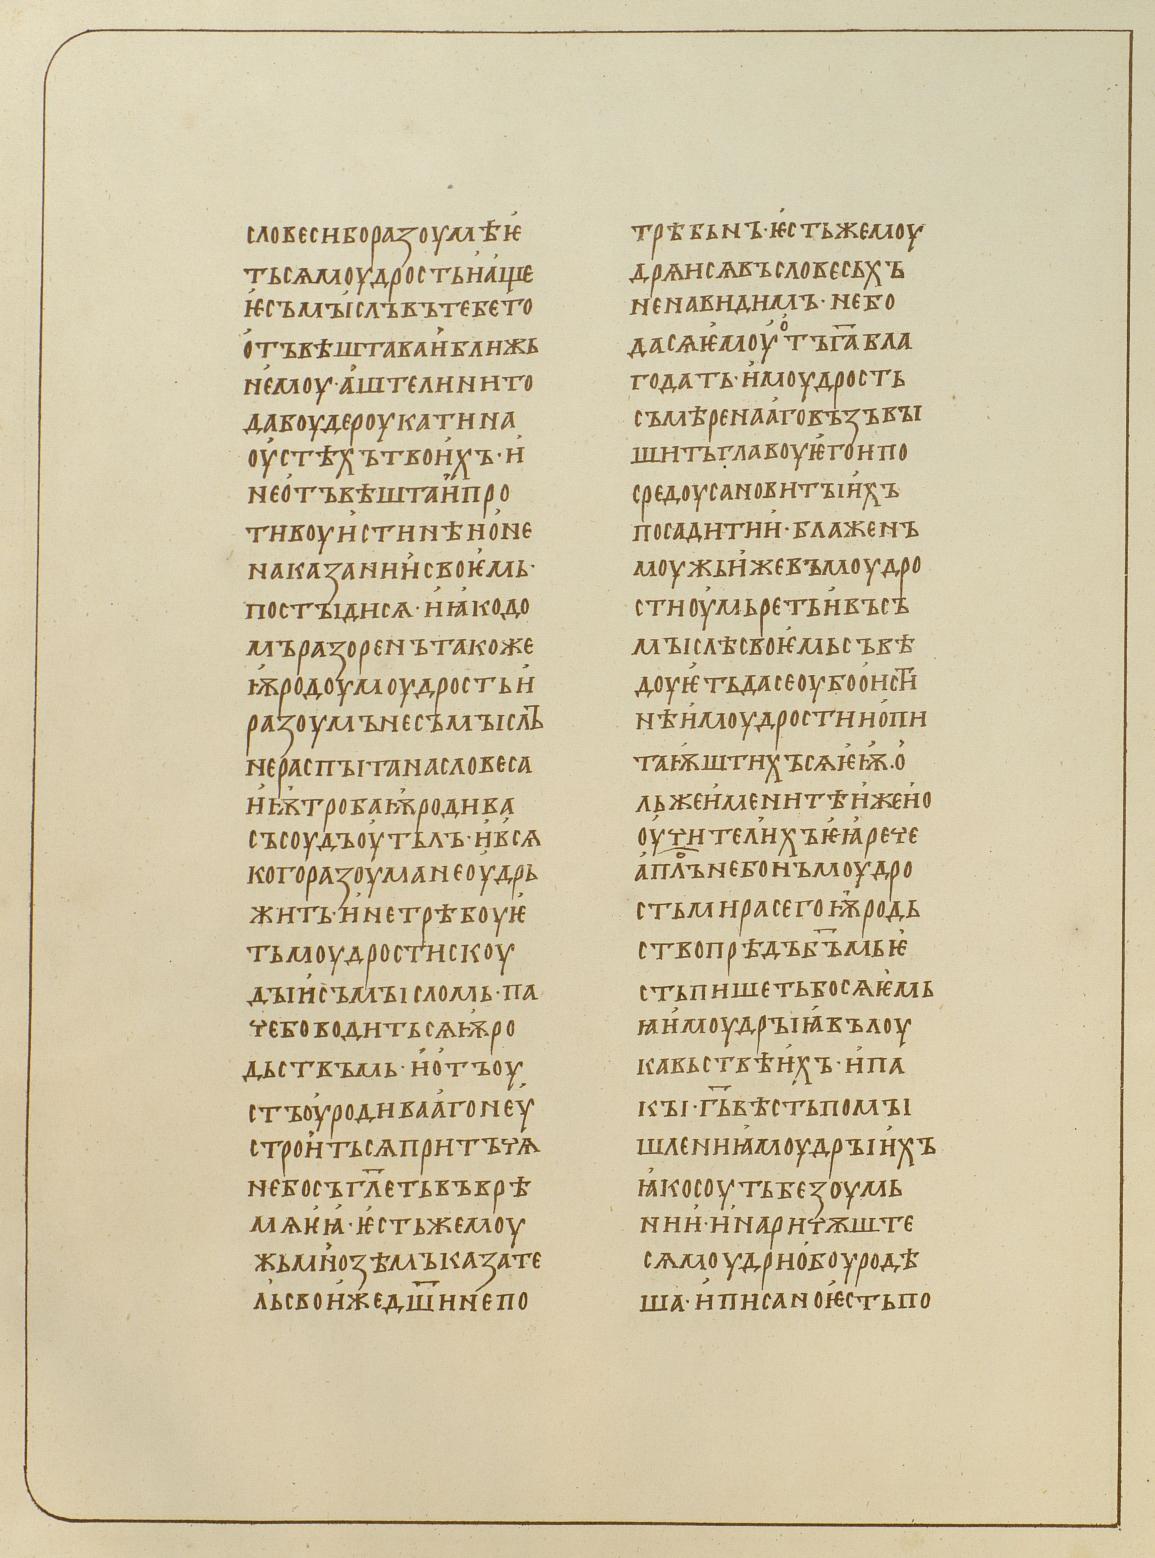 словеси боразоумѣѥ
тьсѧмоудростьнаще
ѥсъмыслъвътебето
отъвѣштаваиближь
немоу·аштелининто
дабоудероукатина
оустѣхътвоихъ·и
неотъвѣштаипро
тивоуистинѣноне
наказаниисвоѥмь·
постыдисѧ·иꙗкодо
мъразоренътакоже
ѭродоумоудростьи
разоумънесъмыслъ
нераспытанасловеса
иѭтробаѭродива
съсоудъоутьлъ·ивсѧ
когоразоуманеоудрь
жить·инетрѣбоуѥ
тьмоудростискоу
дыисъмысломь·па
чебоводитьсѧѭро
дьствъмь·иотъоу
стъоуродиваагонеу
строитьсѧпритъчѧ
небосъгл҃етьвъврѣ
мѧѥꙗ·ѥстьжемоу
жьмнозѣмъказате
льсвоижедш҃инепо
трѣбьнъ·ѥстьжемоу
дрѧисѧвъсловесьхъ
ненавидимъ·небо
дасѧѥмоуотъга҃вла
годать·имоудрость
съмѣренааговъзвы
шитьглавоуѥгоипо
средоусановитыихъ
посадитии·блаженъ
моужьижевъмоудро
стиоумьретьивъсъ
мыслѣсвоѥмьсъвѣ
доуѥтьдасеоубооист҃и
нѣимоудростиинопи
таѭштихъсѧѥѭ.о
льжеименитѣиженио
оучителихъѥꙗрече
апл҃ънебонъмоудро
стьмирасегоѭродь
ствопрѣдъб҃ъмьѥ
стьпишетьбосѧѥмь
ꙗимоудрыꙗвълоу
кавьствѣихъ·ипа
кы·г҃ьвѣстьпомы
шлениꙗмоудрыихъ
ꙗкосоутьбезоумь
нии·инаричѫште
сѧмоудринобоуродѣ
ша·иписаноѥстьпо